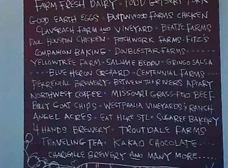 FARM FRESH DAIRY - TODD GEISERT FARM
GOOD EARTH EGGS - BUTTONWOOD FARMS CHICKEN
CLAVERACH FARM AND VINEYARD - BEATIE FARMS
PAUL HOUSTON CHICKEN - PATHWORK FARMS - FITZ'S
COMPANION BAKING - DOUBLESTAR FARMS
YELLOWTREE FARM - SALUME BEDDU - GRINGO SALSA
BLUE HERON ORCHARD - CENTENNIAL FARMS
PERENNIAL BREWERY - BETWEEN THE RIVERS APIARY
NORTHWEST COFFEE - MISSOURI GRASS-FED BEEF
BILLY GOAT CHIPS - WESTPHALIA VINEYARDS RANCH
ANGEL ACRES - EAT HERE STL - SUGAREE BAKERY
4 HANDS BREWERY - TROUTDALE FARMS
TRAVELING TEA - KAKAO CHOCOLATE
CHARLEVILLE BREWERY AND MANY MORE